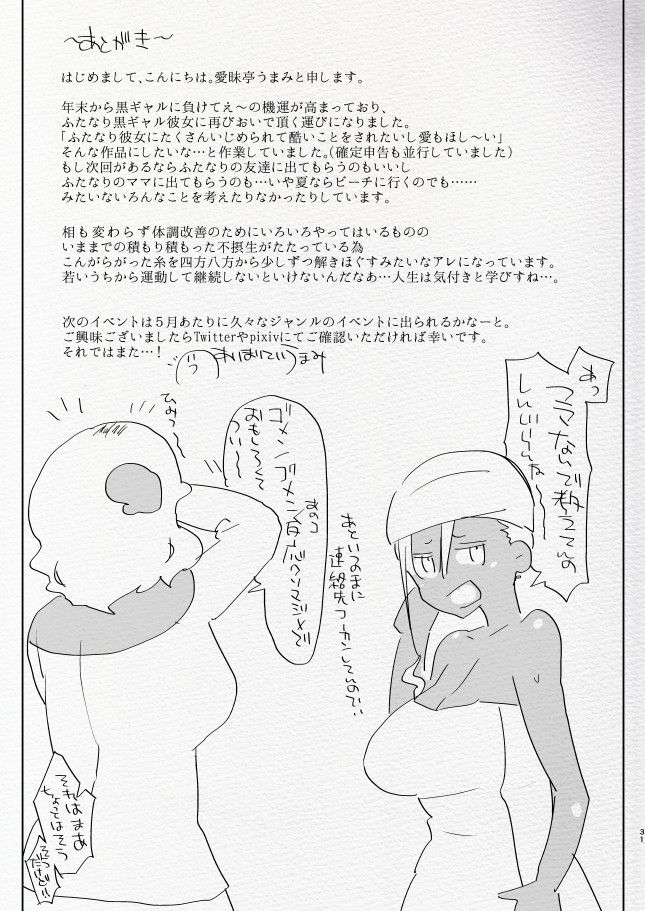 ～あとがき～
はじめまして、こんにちは。愛昧亭うまみと申します。
年末から黒ギャルに負けてえ～の機運が高まっており、
ふたなり黒ギャル彼女に再びおいで頂く運びになりました。
「ふたなり彼女にたくさんいじめられて酷いことをされたいし愛もほし～い」
そんな作品にしたいな…と作業していました。（確定申告も並行していました）
もし次回があるならふたなりの友達に出てもらうのもいいし
ふたなりのママに出てもらうのも…いや夏ならビーチに行くのでも……
みたいないろんなことを考えたりなかったりしています。
相も変わらず体調改善のためにいろいろやってはいるものの
いままでの積もり積もった不摂生がたたっている為
こんがらがった糸を四方八方から少しずつ解きほぐすみたいなアレになっています。
若いうちから運動して継続しないといけないんだなあ…人生は気付きと学びすね…。
次のイベントは５月あたりに久々なジャンルのイベントに出られるかなーと。
ご興味ございましたらTwitterやpixivにてご確認いただければ幸いです。
それではまた…！
あいまいていうまみ
あっ
フツマないで教えてんの
しんじらんね～
ゴメンゴメン
おもしろくて
つい～
あのコ
連絡先コーカンしてんので！？
あといつのまに
それはまあ
ちょっとはそう
だけど！！
31